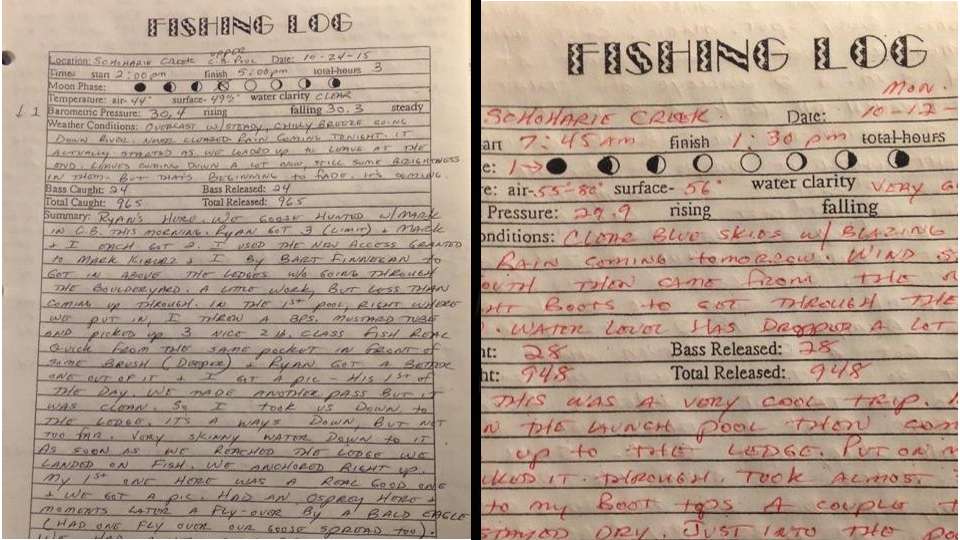 FISHING LOG
Location: SCHOHARIE CREEK UPPER C.B. POOL Date: 10-24-15
Time: start 2:00pm finish 5:00pm total hours 3
Moon Phase:
Temperature: air- 44° surface- 49½° water clarity CLEAR
↓1 Barometric Pressure: 30.4 rising falling 30.3 steady
Weather Conditions: OVERCAST W/STEADY, CHILLY BREEZE GOING
DOWN RIVER. NEVER CLEARED. RAIN COMING TONIGHT. IT
ACTUALLY STARTED AS WE LOADED UP TO LEAVE AT THE
END. LEAVES COMING DOWN A LOT NOW. STILL SOME BRIGHTNESS
IN THEM. BUT THAT'S BEGINNING TO FADE. IT'S COMING.
Bass Caught: 24 Bass Released: 24
Total Caught: 965 Total Released: 965
Summary: RYAN'S HERE. WE GOOSE HUNTED W/MARK
IN C.B. THIS MORNING. RYAN GOT 3 (LIMIT) & MARK
& I EACH GOT 2. I USED THE NEW ACCESS GRANTED
TO MARK KIBURZ & I BY BART FINNEGAN TO
GET IN ABOVE THE LEDGES W/O GOING THROUGH
THE BOULDERYARD. A LITTLE WORK, BUT LESS THAN
COMING UP THROUGH. IN THE 1ST POOL, RIGHT WHERE
WE PUT IN, I THREW A BPS. MUSTARD TUBE
AND PICKED UP 3 NICE 2 LB. CLASS FISH REAL
QUICK FROM THE SAME POCKET IN FRONT OF
SOME BRUSH (DEEPER) & RYAN GOT A BETTER
ONE OUT OF IT & I GOT A PIC - HIS 1ST OF
THE DAY. WE MADE ANOTHER PASS BUT IT
WAS CLEAN. SO I TOOK US DOWN TO
THE LEDGE. IT'S A WAYS DOWN, BUT NOT
TOO FAR. VERY SKINNY WATER DOWN TO IT
AS SOON AS WE REACHED THE LEDGE WE
LANDED ON FISH. WE ANCHORED RIGHT UP.
MY 1ST ONE HERE WAS A REAL GOOD ONE
& WE GOT A PIC. HAD AN OSPREY HERE &
MOMENTS LATER A FLY-OVER BY A BALD EAGLE
(HAD ONE FLY OVER OUR GOOSE SPREAD TOO).
FISHING LOG
MON.
SCHOHARIE CREEK Date: 10-12-
art 7:45am finish 1:30 pm total hours
e: 1→
e: air- 55-80° surface- 56° water clarity VERY
Pressure: 29.9 rising falling
onditions: CLEAR BLUE SKIES W/ BLAZING
RAIN COMING TOMORROW. WIND
OUTH THEN CAME FROM THE
HT BOOTS TO GET THROUGH THE
. WATER LEVEL HAS DROPPED A LOT
ht: 28 Bass Released: 28
ht: 948 Total Released: 948
THIS WAS A VERY COOL TRIP.
N THE LAUNCH POOL THEN
UP TO THE LEDGE. PUT ON
IT THROUGH. TOOK ALMOST
TO MY BOOT TOPS A COUPLE
STAYED DRY. JUST INTO THE